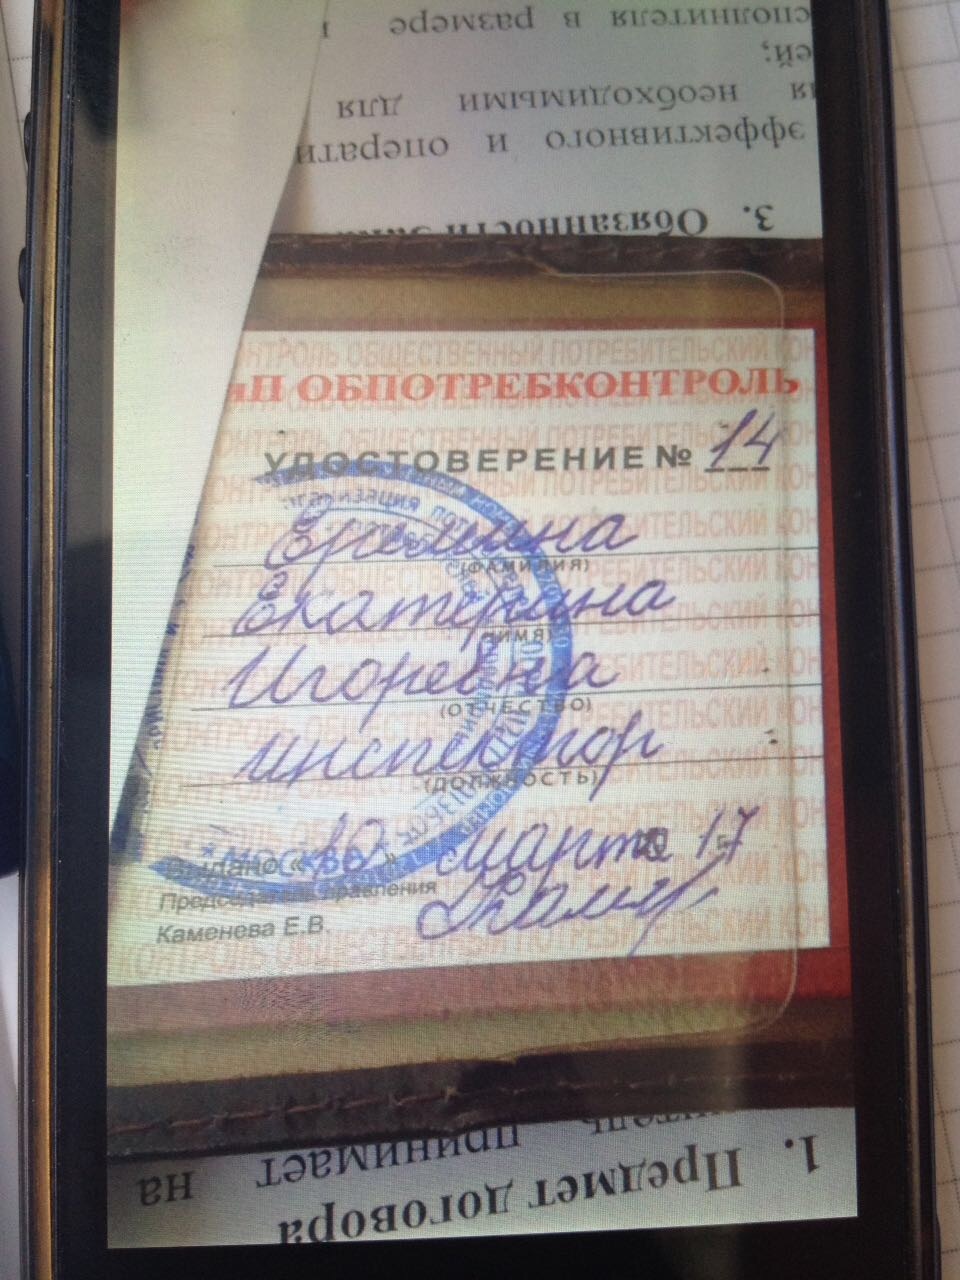 сполнителя в размере
ей;
необходимыми для
эффективного и операти
3. Обязанности
КОНТРОЛЬ ОБЩЕСТВЕННЫЙ ПОТРЕБИТЕЛЬСКИЙ КОН
ОБПОТРЕБКОНТРОЛЬ
УДОСТОВЕРЕНИЕ № 14
Еремина
(ФАМИЛИЯ)
Екатерина
(ИМЯ)
Игоревна
(ОТЧЕСТВО)
инспектор
(ДОЛЖНОСТЬ)
Выдано «10» марта 17
Председатель правления
Каменева Е.В.
МОСКВА
1. Предмет договора
принимает на